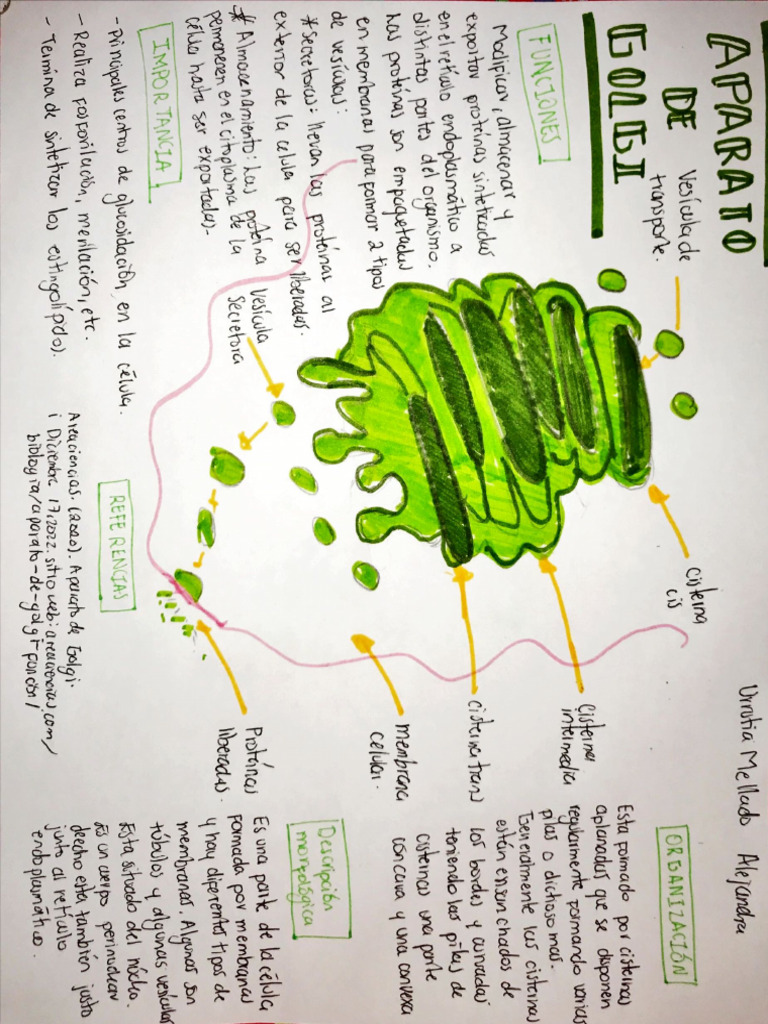 APARATO
DE
GOLGI
Urrutia Mellado Alejandra
FUNCIONES
Modificar, almacenar y
exportar proteínas sintetizadas
en el retículo endoplasmático a
distintas partes del organismo.
Las proteínas son empaquetadas
en membranas para formar 2 tipos
de vesículas:
*Secretoras: llevan las proteínas al
exterior de la célula para ser liberadas.
*Almacenamiento: Las proteína
permanecen en el citoplasma de la
célula hasta ser exportadas.
IMPORTANCIA
-Principales centros de glucosidación en la célula.
- Realiza fosforilación, metilación, etc.
- Termina de sintetizar los estingolípido).
Vesícula de
transporte.
Vesícula
Secretora
cisterna
cis
cisterna
intermedia
cisterna trans
membrana
celular.
Proteínas
liberadas.
REFERENCIAS
Areaciencias. (2020). Aparato de Golgi.
i Diciembre 17, 2022. sitio web: areaciencias.com/
biblogia/aparato-de-golgi-funcion/
ORGANIZACIÓN
Esta formado por cisternas
aplanadas que se disponen
regularmente formando varias
pilas o dictiosomas.
Generalmente las cisternas
están ensanchados de
los bordes y curvadas
teniendo las pilas de
cisternas una parte
concava y una convexa
Descripción
morfológica
Es una parte de la célula
formada por membranas
y hay diferentes tipos de
membranas. Algunas son
túbulos y algunas vesículas
Esta situado del núcleo.
Es un cuerpo perinuclear
decho esta también justo
junto al retículo
endoplasmático.